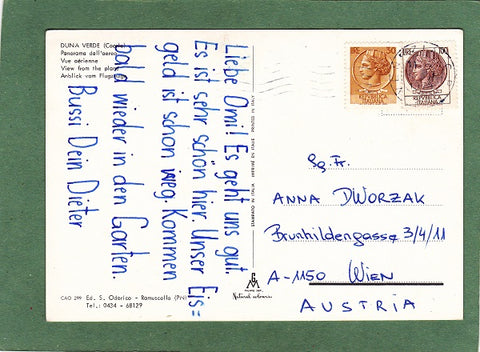 DUNA VERDE (Caorle)
Panorama dall'aereo
Vue aérienne
View from the plane
Anblick vom Flugzeug
Liebe Omi! Es geht uns gut.
Es ist sehr schön hier. Unser Eis=
geld ist schon weg. Kommen
bald wieder in den Garten.
Bussi Dein Dieter
Sg. Fr.
ANNA DWORZAK
Brunhildengasse 3/4/11
A-1150 WIEN
AUSTRIA
CAO 299 Ed. S. Odorico - Ramuscello
Tel.: 0434 - 68129
Natural colours